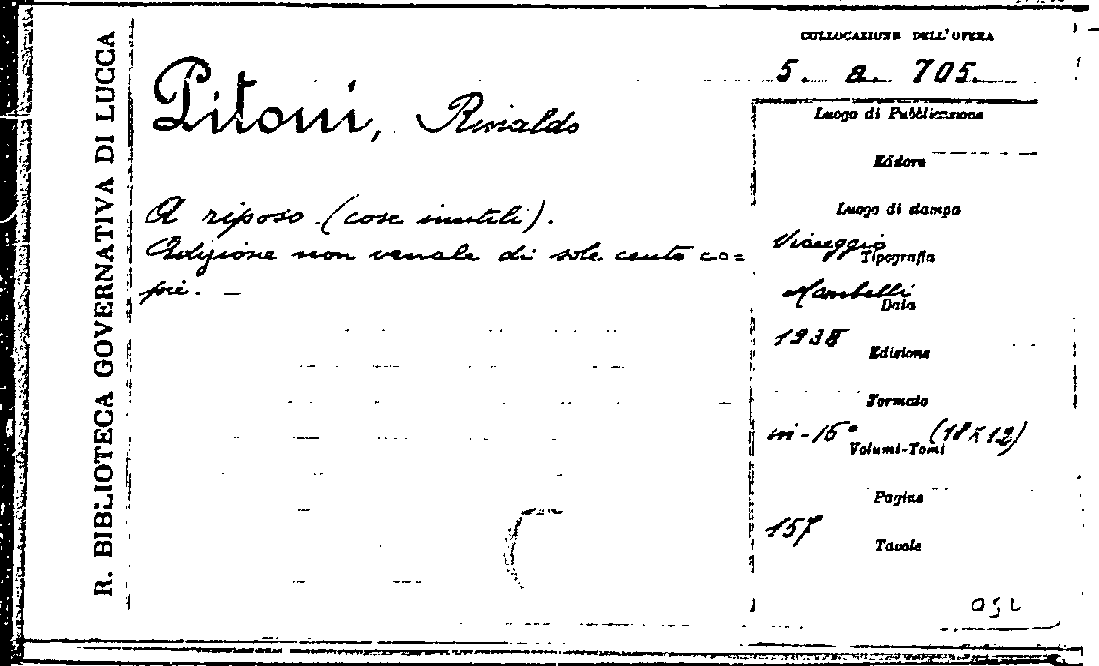 R. BIBLIOTECA GOVERNATIVA DI LUCCA
COLLOCAZIONE DELL'OPERA
5. a. 705.
Pitoni, Rinaldo
A riposo (cose inutili).
Edizione non venale di sole cento co=
pie. —
Luogo di Pubblicazione
Editore
Luogo di stampa
Viareggio
Tipografia
Mambelli
Data
1938
Edizione
Formato
in-16° (18x12)
Volumi-Tomi
Pagine
157
Tavole